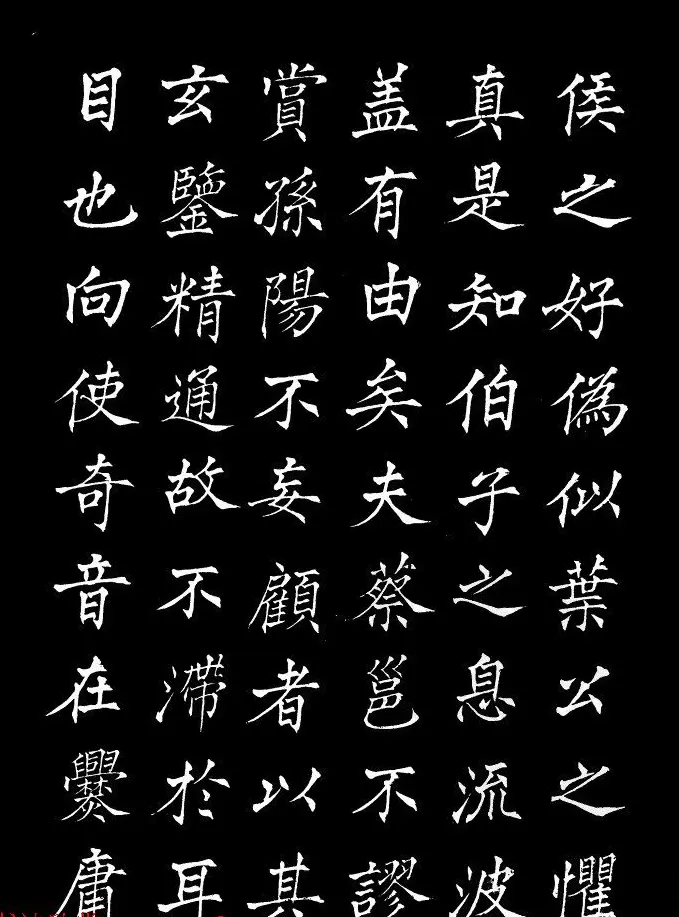 侯之好偽似葉公之懼
真是知伯子之息流波
盖有由矣夫蔡邕不謬
賞孫陽不妄顧者以其
玄鑒精通故不滯於耳
目也向使奇音在爨庸